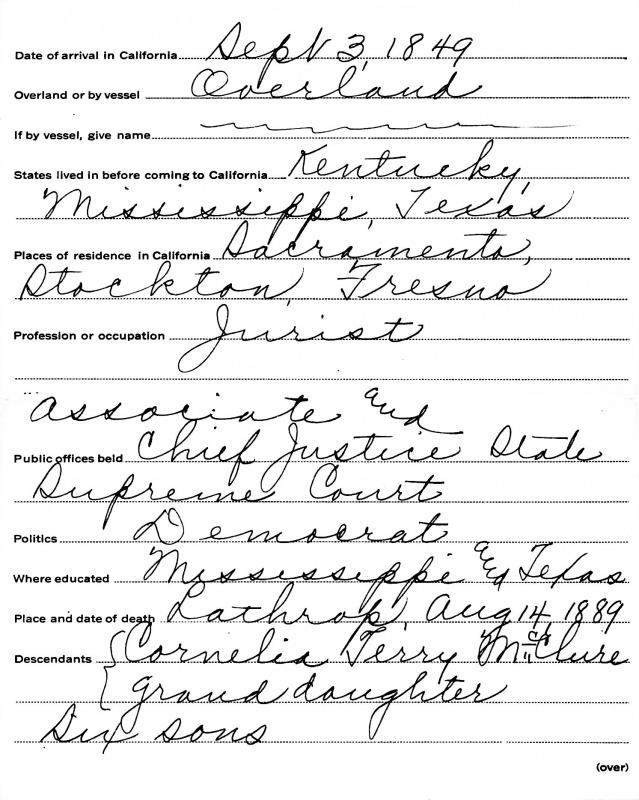 Date of arrival in California Sept 3, 1849
Overland or by vessel Overland
If by vessel, give name
States lived in before coming to California Kentucky,
Mississippi, Texas
Places of residence in California Sacramento,
Stockton, Fresno
Profession or occupation Jurist
Associate and
Public offices held Chief Justice State
Supreme Court
Politics Democrat
Where educated Mississippi and Texas
Place and date of death Lathrop, Aug 14, 1889
Descendants Cornelia Terry McClure
grand daughter
Six sons
(over)